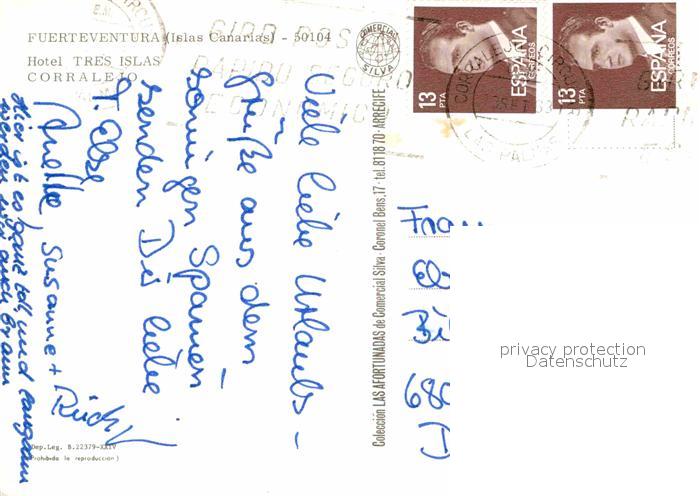 FUERTEVENTURA (Islas Canarias) - 50104
Hotel TRES ISLAS
CORRALEJO
Viele liebe Urlaubs-
grüße aus dem
sonnigen Spanien
senden Dir liebe
T. Else
Anette, Susanne +
Hier ist es ganz toll und langsam
werden wir auch braun
Dep.Leg. B.22379-XXIV
Prohibida la reproducción)
Colección LAS AFORTUNADAS de Comercial Silva - Coronel Bens, 17 - tel. 81 18 70 - ARRECIFE
COMERCIAL
SILVA
13
PTA
ESPAÑA
CORREOS
13
PTA
ESPAÑA
CORREOS
CORRALEJO
LAS PALMAS
Fra
680
privacy protection
Datenschutz